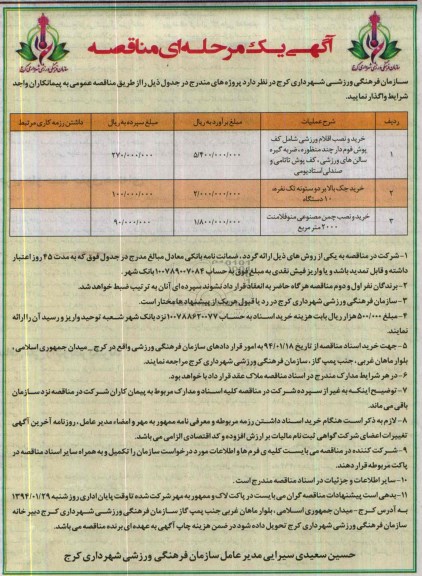 آگهی یک مرحله‌ای مناقصه
سازمان فرهنگی ورزشی شهرداری کرج
سازمان فرهنگی ورزشی شهرداری کرج
سازمان فرهنگی ورزشی شهرداری کرج در نظر دارد پروژه های مندرج در جدول ذیل را از طریق مناقصه عمومی به پیمانکاران واجد
شرایط واگذار نمایید.
ردیف شرح عملیات مبلغ برآورد به ریال مبلغ سپرده به ریال داشتن رزمه کاری مرتبط
۱ خرید و نصب اقلام ورزشی شامل کف
پوش فوم دار چند منظوره، ضربه گیره
سالن های ورزشی، کف پوش تاتامی و
صندلی استادیومی
۵/۴۰۰/۰۰۰/۰۰۰ ۲۷۰/۰۰۰/۰۰۰
۲ خرید جک بالابر دو ستونه تک نفره،
۱۰ دستگاه
۲/۰۰۰/۰۰۰/۰۰۰ ۱۰۰/۰۰۰/۰۰۰
۳ خرید و نصب چمن مصنوعی مونوفلامنت
۲۰۰۰ متر مربع
۱/۸۰۰/۰۰۰/۰۰۰ ۹۰/۰۰۰/۰۰۰
۱-شرکت در مناقصه به یکی از روش های ذیل ارائه گردد، ضمانت نامه بانکی معادل مبالغ مدرج در جدول فوق که به مدت ۴۵ روز اعتبار
داشته و قابل تمدید باشد و یا واریز فیش نقدی به مبلغ فوق به حساب ۱۰۰۷۸۹۰۰۷۰۸۴ بانک شهر.
۲- برندگان نفر اول و دوم مناقصه هرگاه حاضر به انعقاد قرار داد نشوند سپرده ای آنان به ترتیب ضبط خواهد شد.
۳-سازمان فرهنگی ورزشی شهرداری کرج در رد یا قبول هر یک از پیشنهادها مختار است.
۴- مبلغ ۵۰۰/۰۰۰ هزار ریال بابت هزینه خرید اسناد به حساب ۱۰۰۷۸۸۶۲۰۰۷۷ نزد بانک شهر شعبه توحید واریز و رسید آن را ارائه
نمایند.
۵- جهت خرید اسناد مناقصه از تاریخ ۹۴/۰۱/۱۸ به امور قرار دادهای سازمان فرهنگی ورزشی واقع در کرج_ میدان جمهوری اسلامی،
بلوار ماهان غربی، جنب پمپ گاز، سازمان فرهنگی ورزشی شهرداری کرج مراجعه نمایند.
۶- در هر شرایط مدارک مندرج در اسناد مناقصه ملاک عقد قرار داد با خواهد بود.
۷- توضیح اینکه به غیر از سپرده شرکت در مناقصه کلیه اسناد و مدارک مربوط به پیمان کاران شرکت در مناقصه نزد سازمان
باقی می ماند.
۸- لازم به ذکر است هنگام خرید اسناد داشتن رزمه مربوطه و معرفی نامه ممهور به مهر و امضاء مدیر عامل، روزنامه آخرین آگهی
تغییرات اعضای شرکت گواهی ثبت نام مالیات بر ارزش افزوده و کد اقتصادی الزامی می باشد.
۹-شرکت کننده در مناقصه می بایست کلیه ی فرم ها و اطلاعات مورد درخواست سازمان را تکمیل و به همراه سایر اسناد مناقصه در
پاکت مربوطه قرار دهند.
۱۰-سایر اطلاعات و جزئیات در اسناد مناقصه مندرج است.
۱۱-بدهی است پیشنهادات مناقصه گران می بایست در پاکت لاک و ممهور به مهر شرکت شده تا وقت پایان اداری روز شنبه ۱۳۹۴/۰۱/۲۹
به آدرس کرج- میدان جمهوری اسلامی، بلوار ماهان غربی جنب پمپ گاز سازمان فرهنگی ورزشی شهرداری کرج دبیر خانه
سازمان فرهنگی ورزشی شهرداری کرج تحویل داده شود در ضمن هزینه چاپ آگهی به عهده ای برنده مناقصه می باشد.
حسین سعیدی سیرایی مدیر عامل سازمان فرهنگی ورزشی شهرداری کرج